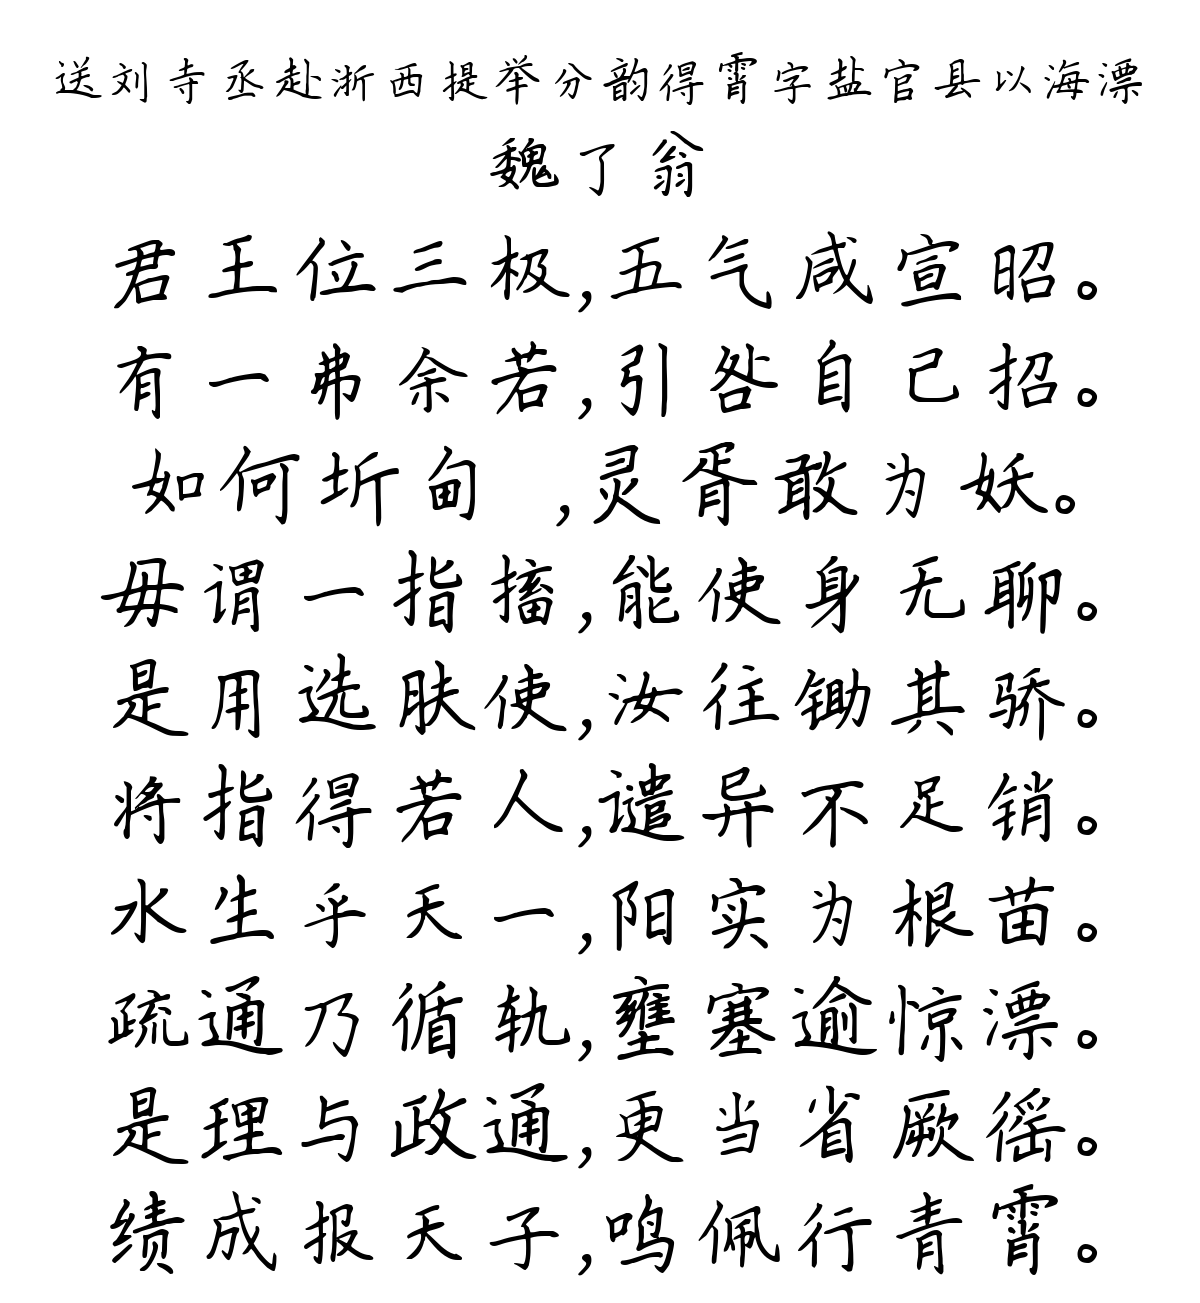 送刘寺丞赴浙西提举分韵得霄字盐官县以海漂
魏了翁
君王位三极,五气咸宣昭。
有一弗余若,引咎自己招。
如何圻甸 ,灵胥敢为妖。
毋谓一指搐,能使身无聊。
是用选肤使,汝往锄其骄。
将指得若人,谴异不足销。
水生乎天一,阳实为根苗。
疏通乃循轨,壅塞逾惊漂。
是理与政通,更当省厥徭。
绩成报天子,鸣佩行青霄。